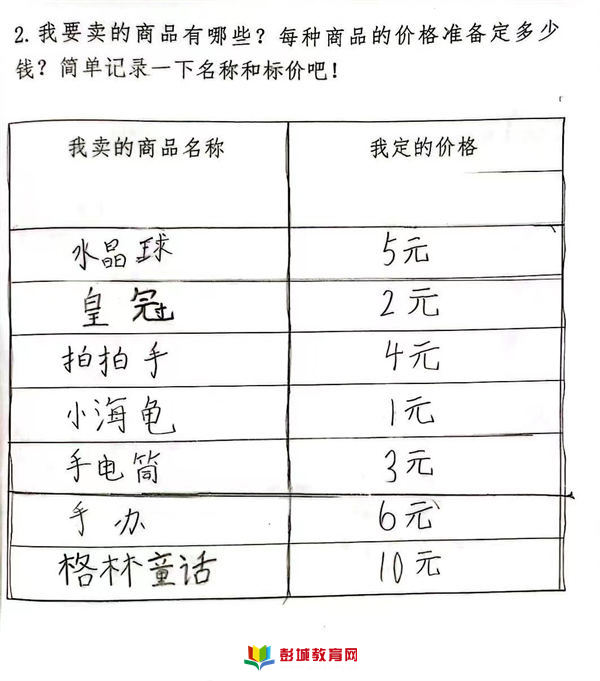 2.我要卖的商品有哪些？每种商品的价格准备定多少
钱？简单记录一下名称和标价吧！
我卖的商品名称 我定的价格
水晶球 5元
皇冠 2元
拍拍手 4元
小海龟 1元
手电筒 3元
手办 6元
格林童话 10元
彭城教育网